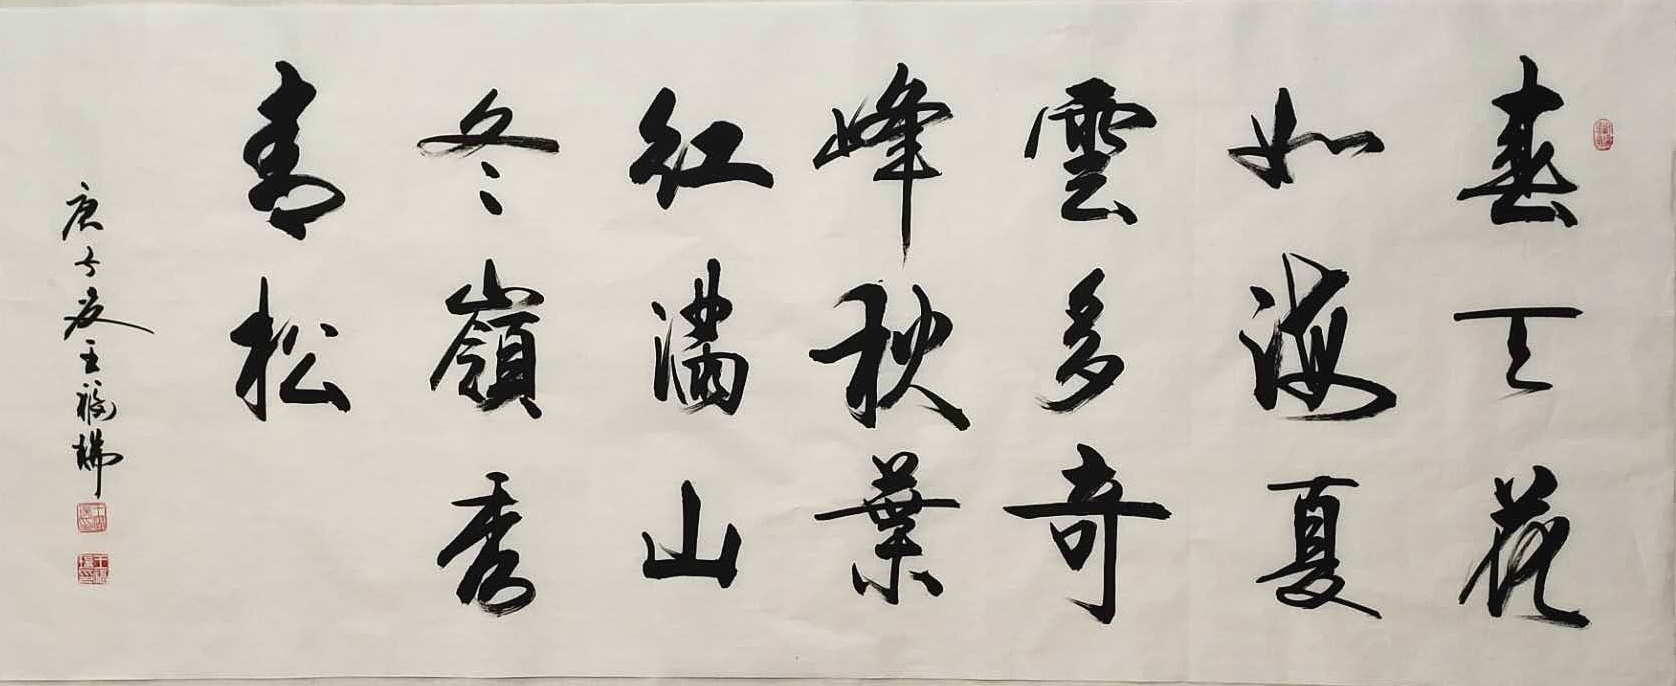 春天花
如海夏
雲多奇
峰秋葉
红滿山
冬嶺秀
青松
庚子夏王福